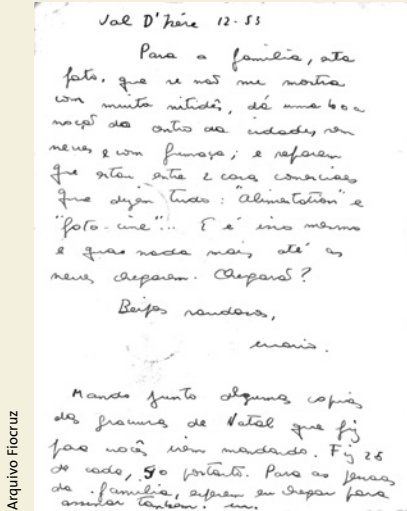 Val D'Isère 12-53
Para a familia, esta
foto, que se não me mostra
com muita nitidês, dá uma boa
noção do centro da cidade, sem
neve e com fumaça; e reparem
que estou entre 2 casas comerciais
que dizem tudo: "Alimentation" e
"foto-cine"... E é isso mesmo
e quase nada mais até as
neves chegarem. Chegarão?
Beijos saudosos,
Mando junto algumas copias
das gravuras de Natal que fiz
para vocês irem mandando. Fiz 25
de cada, 50 portanto. Para as pessoas
da familia, esperem eu chegar para
assinar tambem.
Arquivo Fiocruz